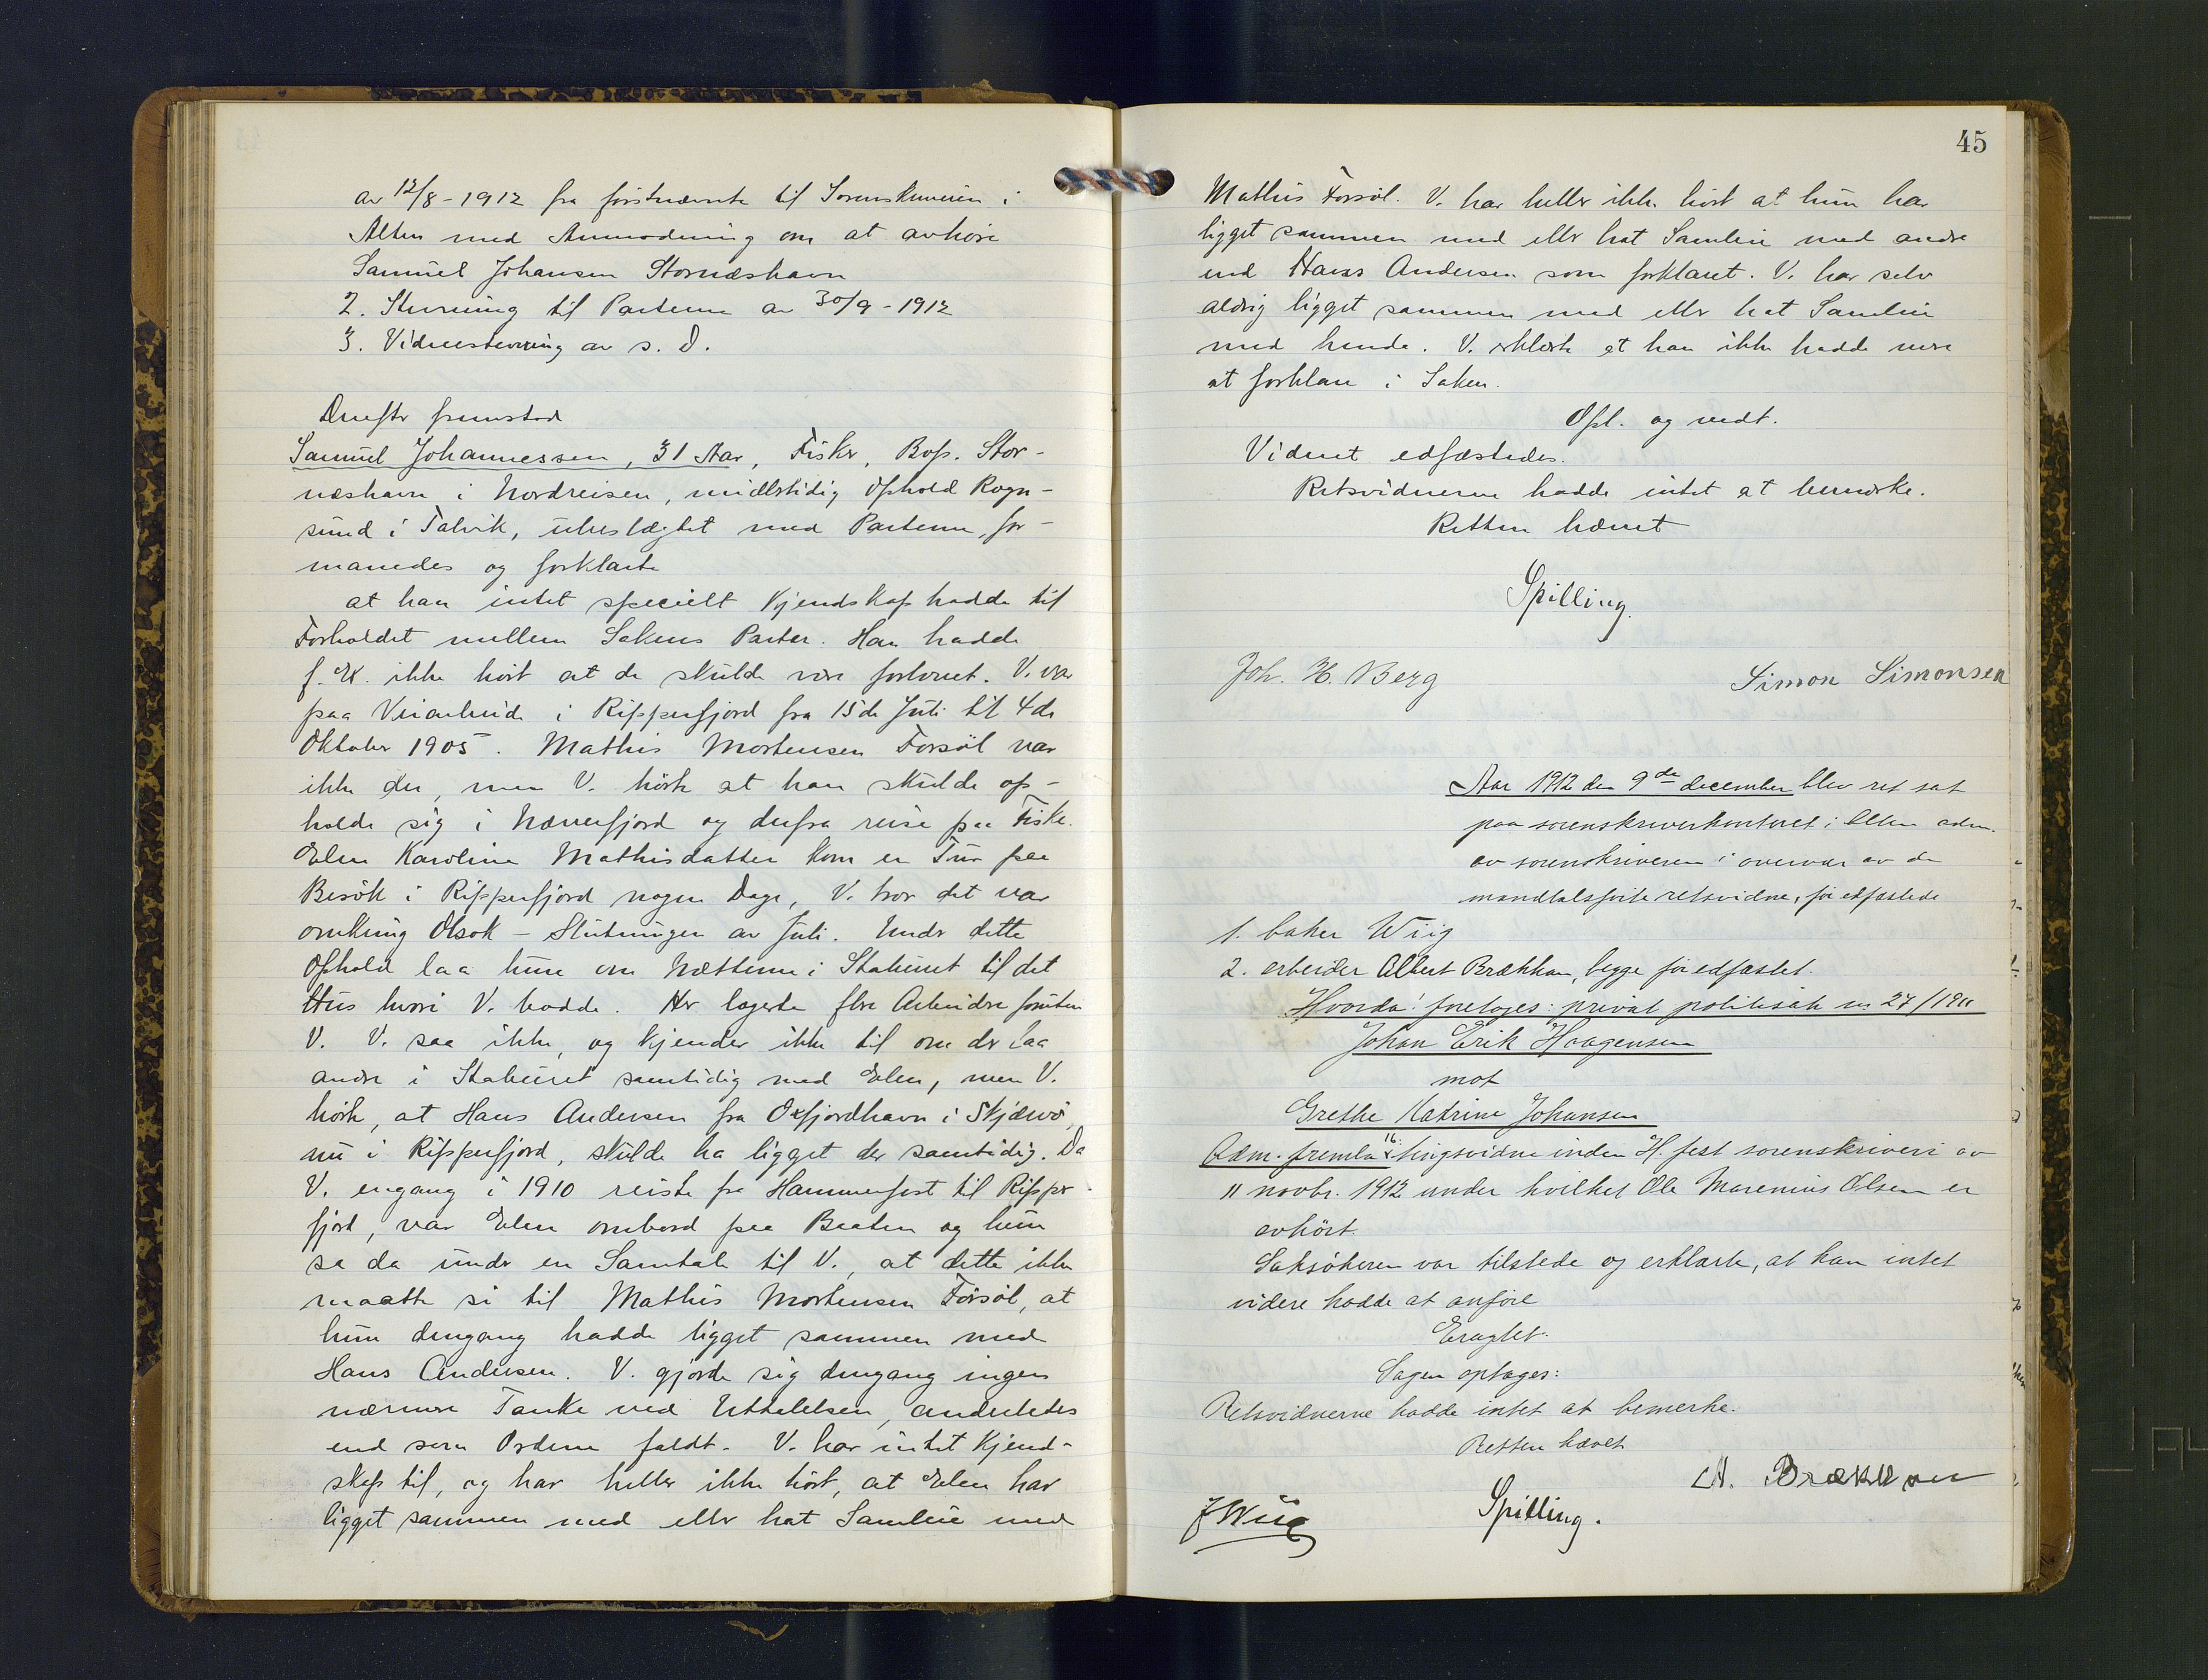 av 12/8-1912 fra förstnævnte til Sorenskriveren i
Alten med Anmodning om at avhöre
Samuel Johansen Stornæshavn
2. Stevning til Parterne av 30/9-1912
3. Vidnestevning av s. D.
Derefter fremstod
Samuel Johannessen, 31 Aar, Fisker, Bop. Stor-
næshavn i Nordreisen, midlertidig Ophold Rogn-
sund i Talvik, ubeslægtet med Parterne, for-
manedes og forklarte
at han intet specielt Kjendskap hadde til
Forholdet mellem Sakens Parter. Han hadde
f. Ex. ikke hört at de skulde være forlovet. V. var
paa Veiarbeide i Repparfjord fra 15de Juli til 4de
Oktober 1905. Mathis Mortensen Forsöl var
ikke der, men V. hörte at han skulde op-
holde sig i Næverfjord og derfra reise paa Fiske.
Elen Karoline Mathisdatter kom en Tur paa
Besök i Ripperfjord nogen Dage, V. tror det var
omkring Olsok - Slutningen av Juli. Under dette
Ophold laa hun om Nætterne i Staburet til det
Hus hvori V. bodde. Her logerte flere Arbeidere foruten
V. V. saa ikke, og kjender ikke til om der laa
andre i Staburet samtidig med Elen, men V.
hörte, at Hans Andersen fra Oxfjordhavn i Skjærvö,
nu i Ripperfjord, skulde ha ligget der samtidig. Da
V. engang i 1910 reiste fra Hammerfest til Ripper-
fjord, var Elen ombord paa Baaten og hun
sa da under en Samtale til V., at dette ikke
maatte si til Mathis Mortensen Forsöl, at
hun dengang hadde ligget sammen med
Hans Andersen. V. gjorde sig dengang ingen
nærmere Tanke ved Uttalelsen, anderledes
end som Ordene faldt. V. har intet Kjend-
skap til, og har heller ikke hört, at Elen har
ligget sammen med eller hat Samleie med
45
Mathis Forsöl. V. har heller ikke hört at hun har
ligget sammen med eller hat Samleie med andre
end Hans Andersen som forklaret. V. har selv
aldrig ligget sammen med eller hat Samleie
med hende. V. erklærte at han ikke hadde mere
at forklare i Saken.
Opl. og vedt.
Vidnet edfæstedes.
Retsvidnerne hadde intet at bemerke.
Retten hævet
Spilling.
Joh. H. Berg
Simon Simonsen
Aar 1912 den 9de december blev ret sat
paa sorenskriverkontoret i Alten adm.
av sorenskriveren i overvær av de
mandtalsförte retsvidner, för edfæstede
1. baker Wiig
2. arbeider Albert Brækkan, begge för edfæstet.
Hvorda: foretoges: privat politisak nr 27/1911
Johan Erik Haagensen
mot
Grethe Katrine Johansen
Adm. fremla 16: tingsvidne inden H. fest sorenskriveri av
11 novbr. 1912 under hvilket Ole Marenius Olsen er
avhört.
Saksökeren var tilstede og erklærte, at han intet
videre hadde at anföre
Eragtet.
Sagen optages:
Retsvidnerne hadde intet at bemerke.
Retten hævet
A. Brækkan
Spilling.
J Wiig